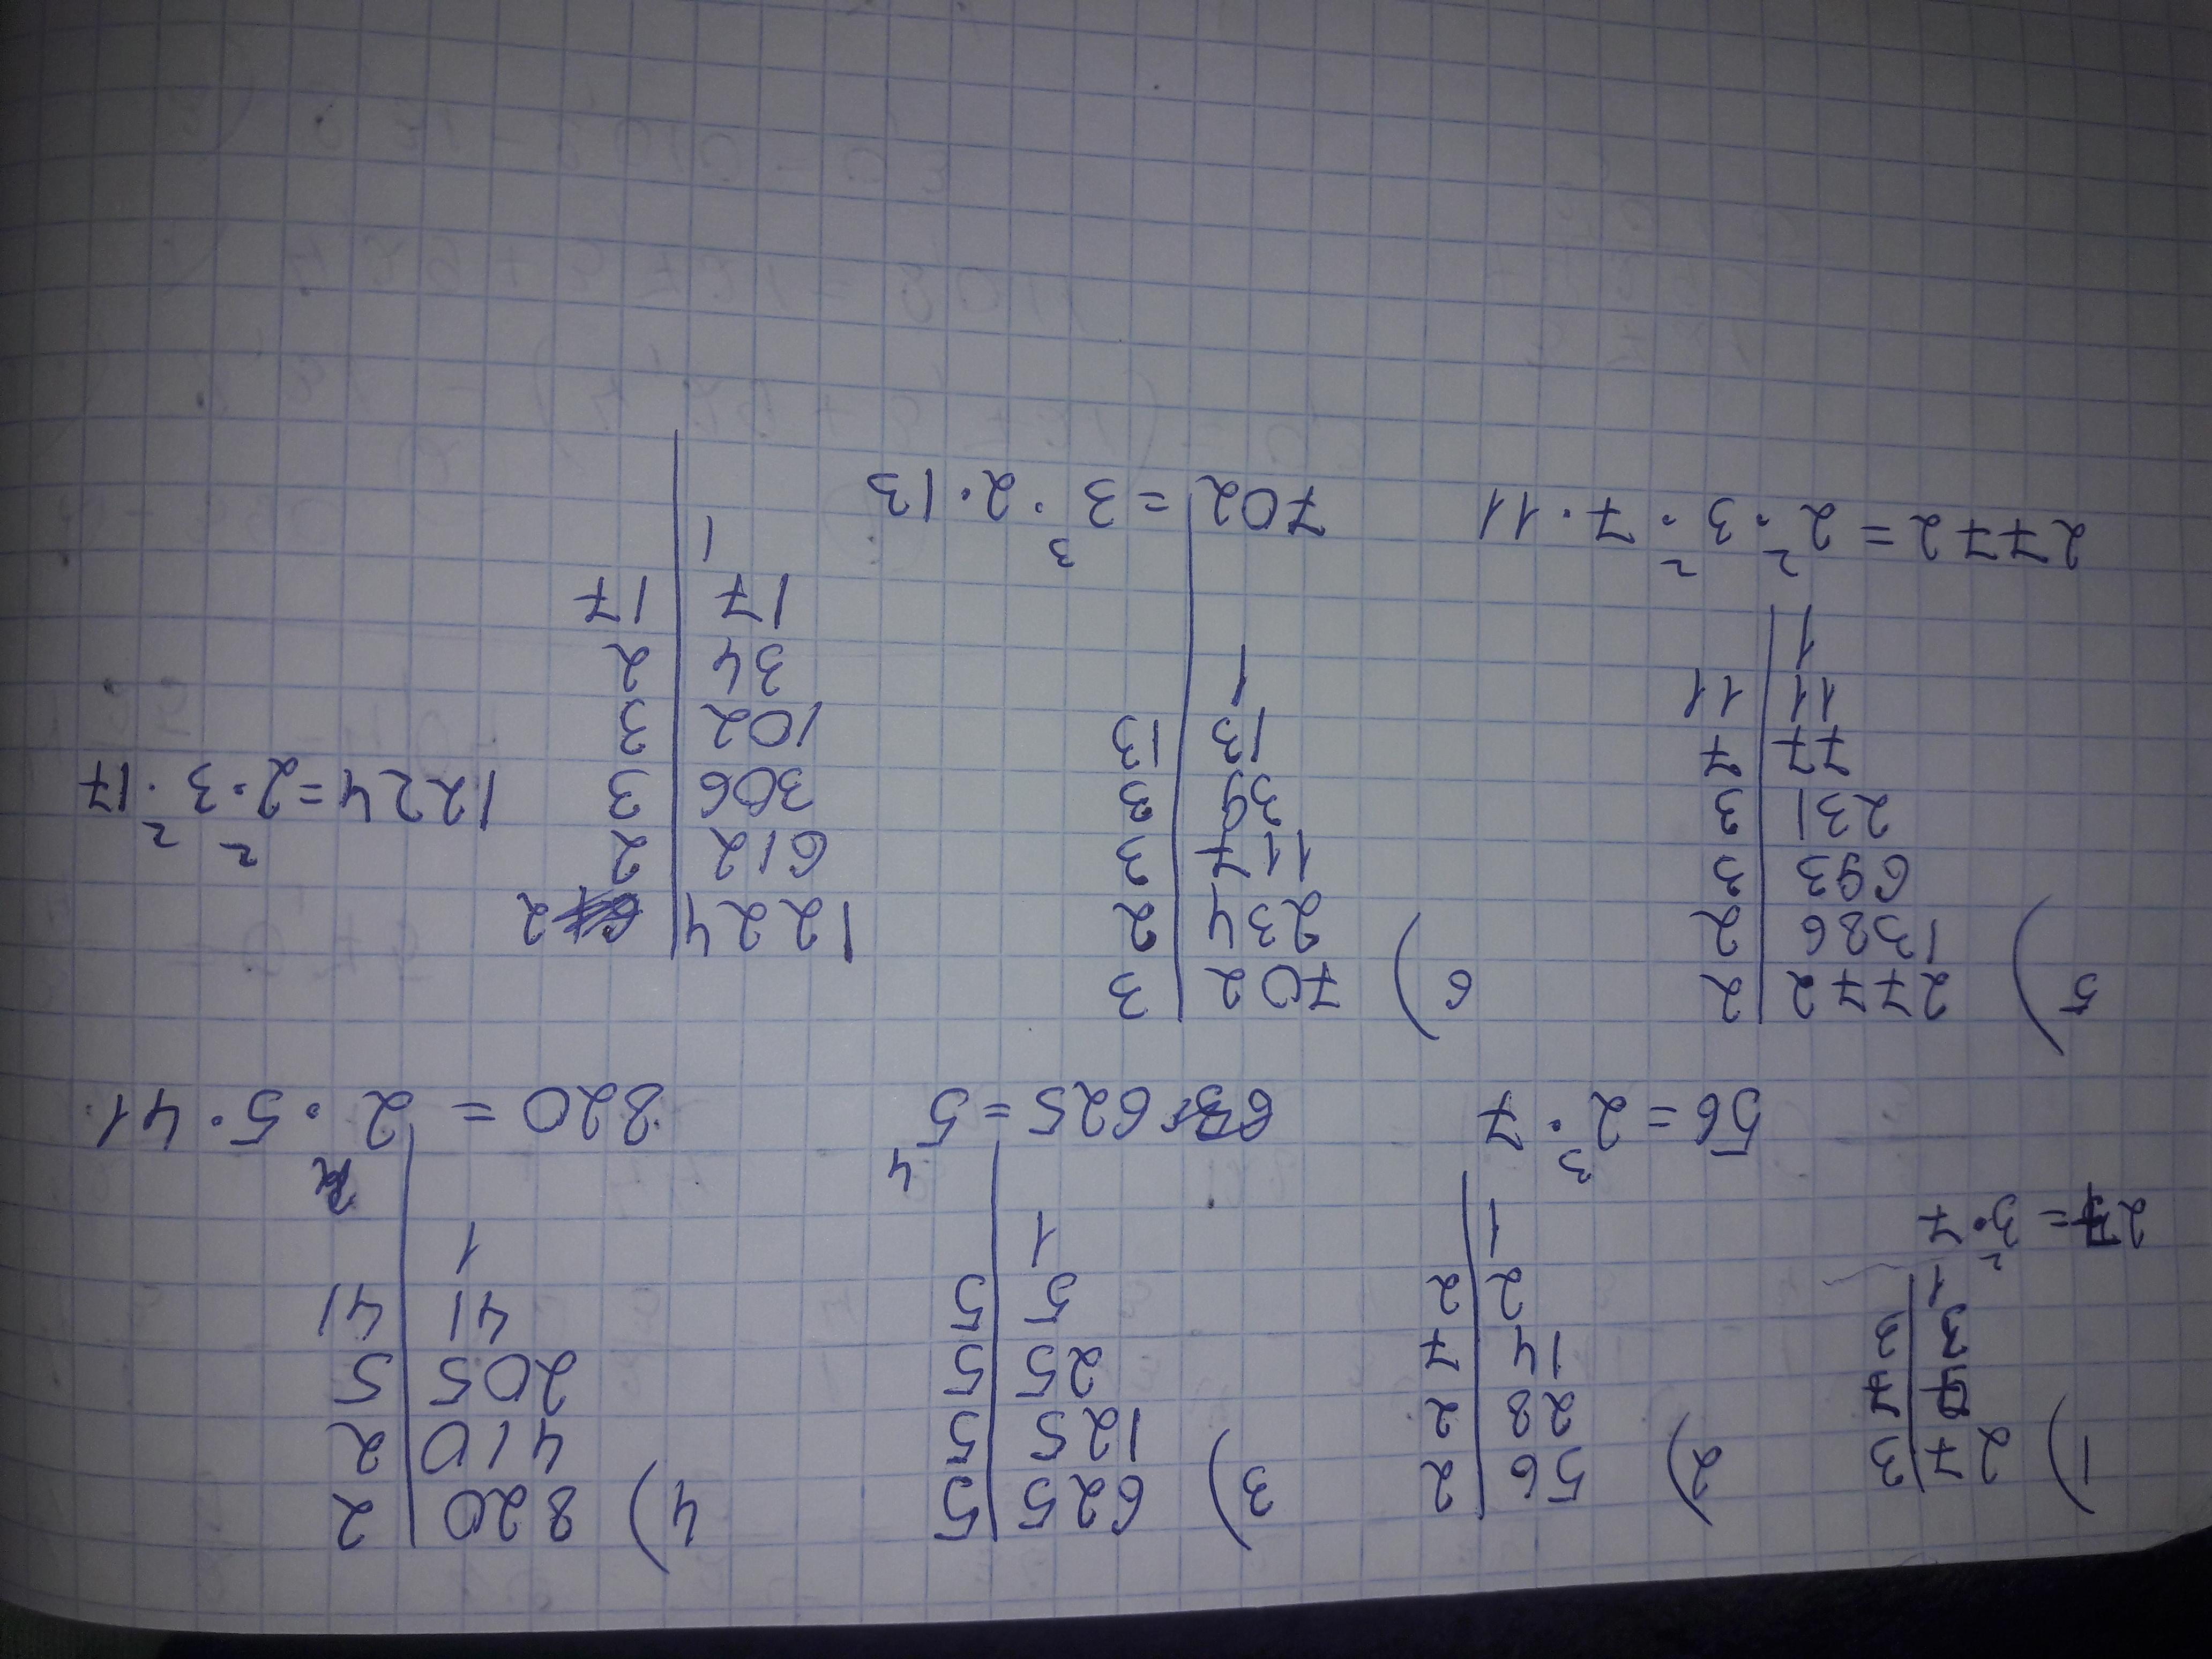 1) 27 | 3
9 | 7
3 | 3
1 |
27 = 3² · 7
2) 56 | 2
28 | 2
14 | 7
2 | 2
1 |
56 = 2³ · 7
3) 625 | 5
125 | 5
25 | 5
5 | 5
1 |
625 = 5⁴
4) 820 | 2
410 | 2
205 | 5
41 | 41
1 |
820 = 2² · 5 · 41
5) 2772 | 2
1386 | 2
693 | 3
231 | 3
77 | 7
11 | 11
1 |
2772 = 2² · 3² · 7 · 11
6) 702 | 3
234 | 2
117 | 3
39 | 3
13 | 13
1 |
702 = 3³ · 2 · 13
1224 | 2
612 | 2
306 | 3
102 | 3
34 | 2
17 | 17
1 |
1224 = 2² · 3² · 17